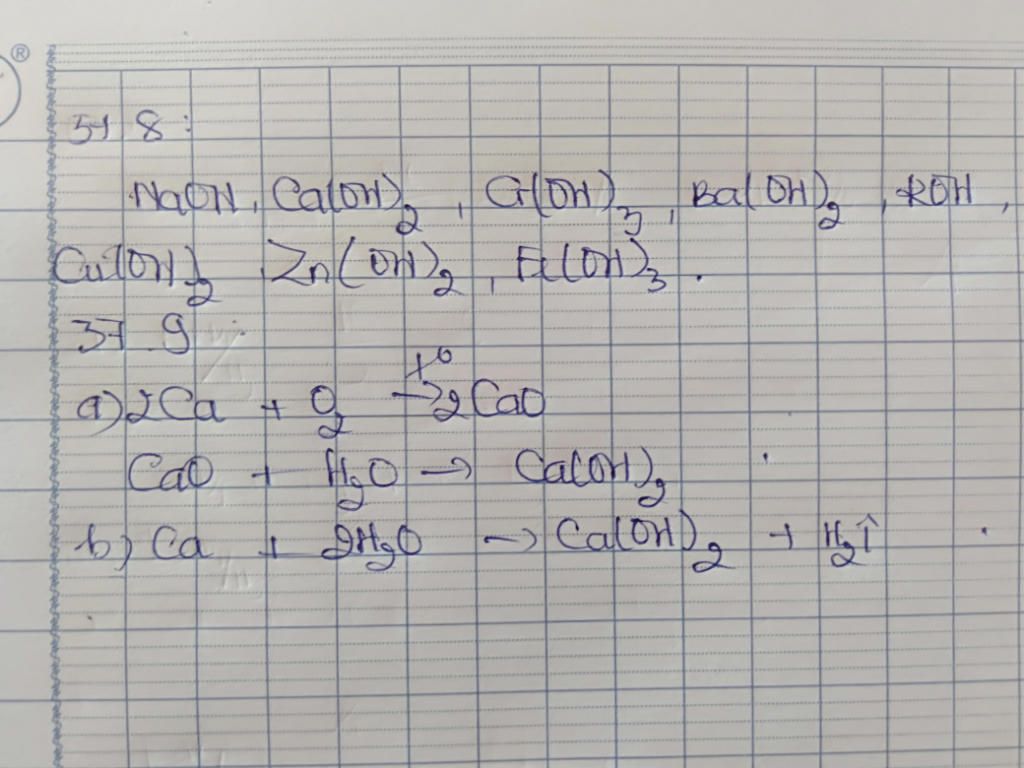 ®
51 8 :
NaOH, Ca(OH)₂, Cr(OH)₃, Ba(OH)₂, KOH,
Cu(OH)₂ Zn(OH)₂, Fe(OH)₃.
37 9
a) 2Ca + O₂ –t⁰→ 2CaO
CaO + H₂O → Ca(OH)₂
b) Ca + 2H₂O → Ca(OH)₂ + H₂↑